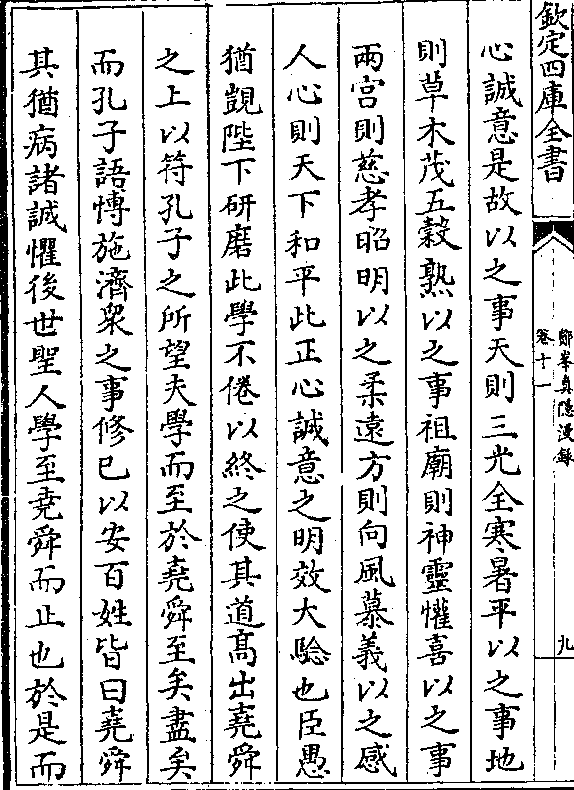 欽定四庫全書
鄮峯真隠漫録
卷十一
九
心誠意是故以之事天則三光全寒暑平以之事地
則草木茂五穀熟以之事祖廟則神靈懽喜以之事
兩宫則慈孝昭明以之柔逺方則向風慕義以之感
人心則天下和平此正心誠意之明效大騐也臣愚
猶覬陛下研磨此學不倦以終之使其道髙出堯舜
之上以符孔子之所望夫學而至於堯舜至矣盡矣
而孔子語愽施濟衆之事修已以安百姓皆曰堯舜
其猶病諸誠懼後世聖人學至堯舜而止也於是而